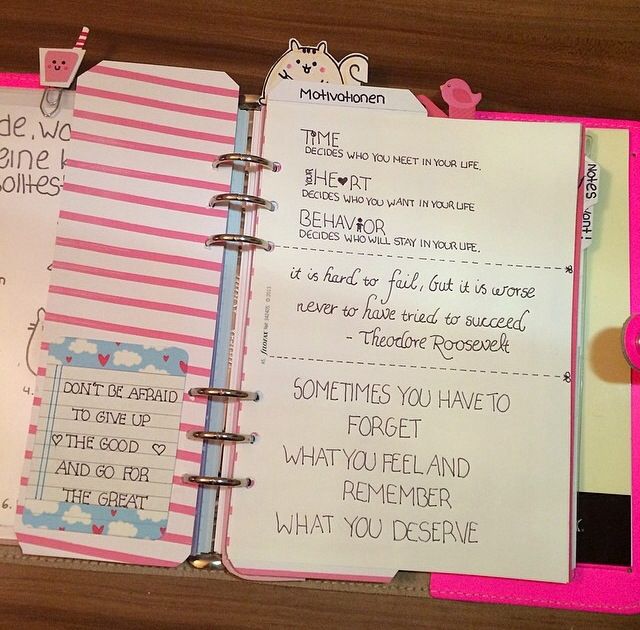 de, wo
eine
solltest
4.
6.
DON'T BE AFRAID
TO GIVE UP
♡ THE GOOD ♡
AND GO FOR
THE GREAT
Motivationen
TIME
DECIDES WHO YOU MEET IN YOUR LIFE.
YOUR HE♥RT
DECIDES WHO YOU WANT IN YOUR LIFE
BEHAVIOR
DECIDES WHO WILL STAY IN YOUR LIFE.
it is hard to fail, but it is worse
never to have tried to succeed
- Theodore Roosevelt
SOMETIMES YOU HAVE TO
FORGET
WHAT YOU FEEL AND
REMEMBER
WHAT YOU DESERVE
Notes